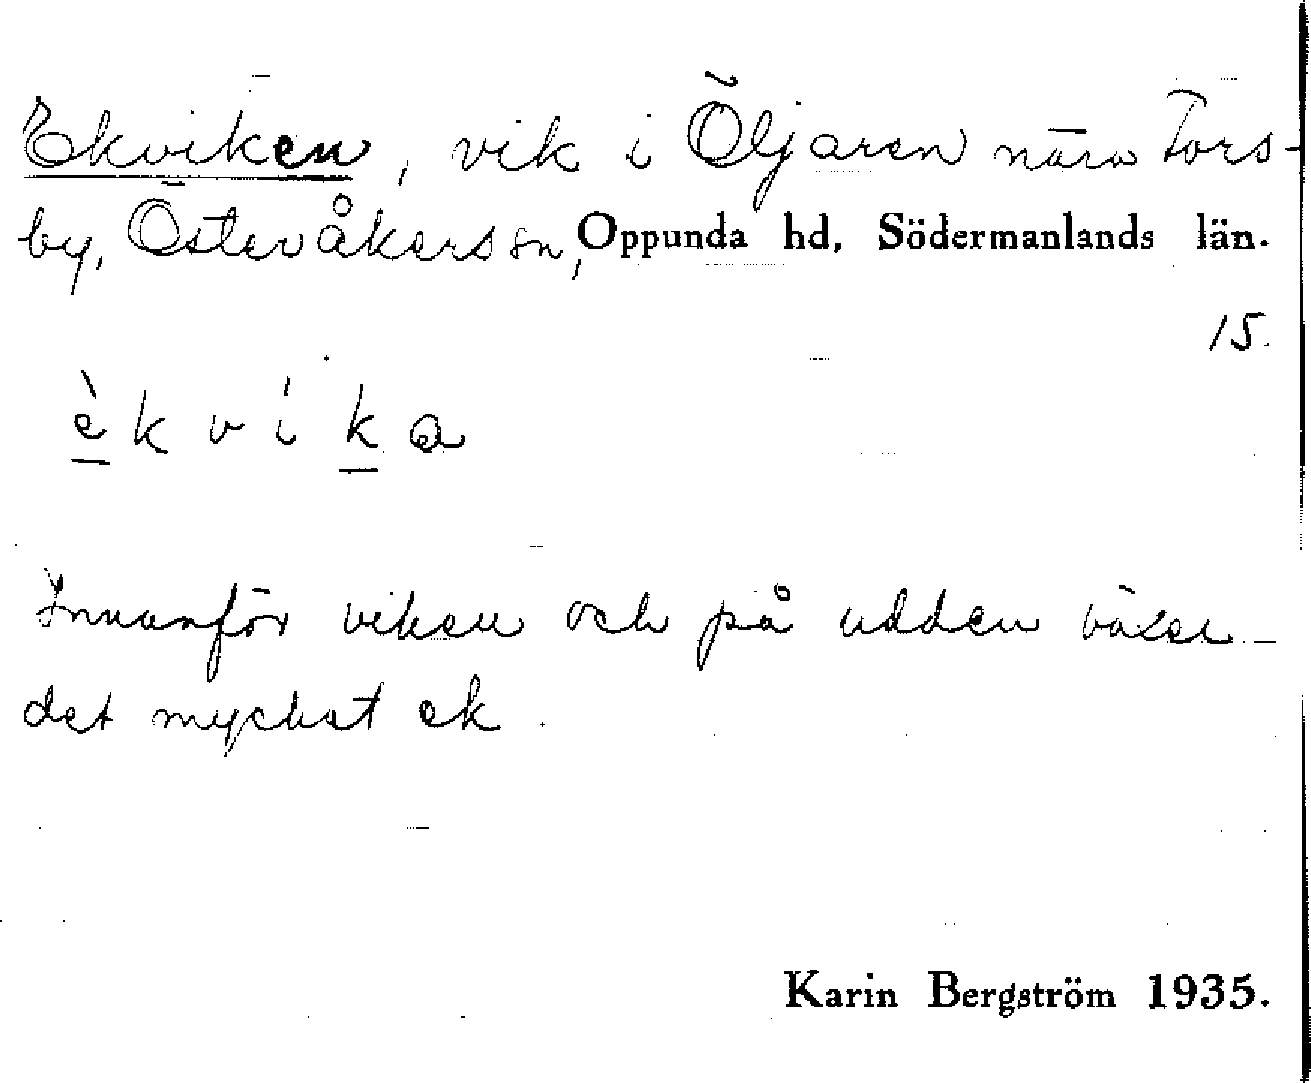 Ekviken, vik i Öljaren nära Tors-
by, Österåkers sn, Oppunda hd, Södermanlands län.
15.
è k v i k a
Innanför viken och på udden växer
det mycket ek.
Karin Bergström 1935.